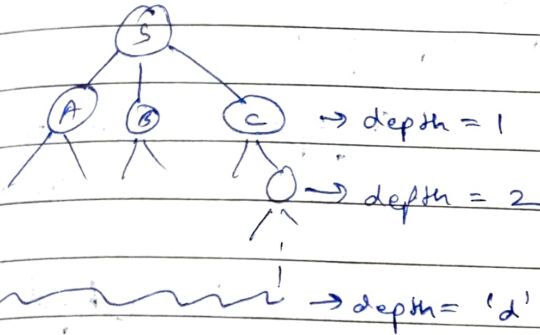 S
A B C → depth = 1
→ depth = 2
→ depth = 'd'